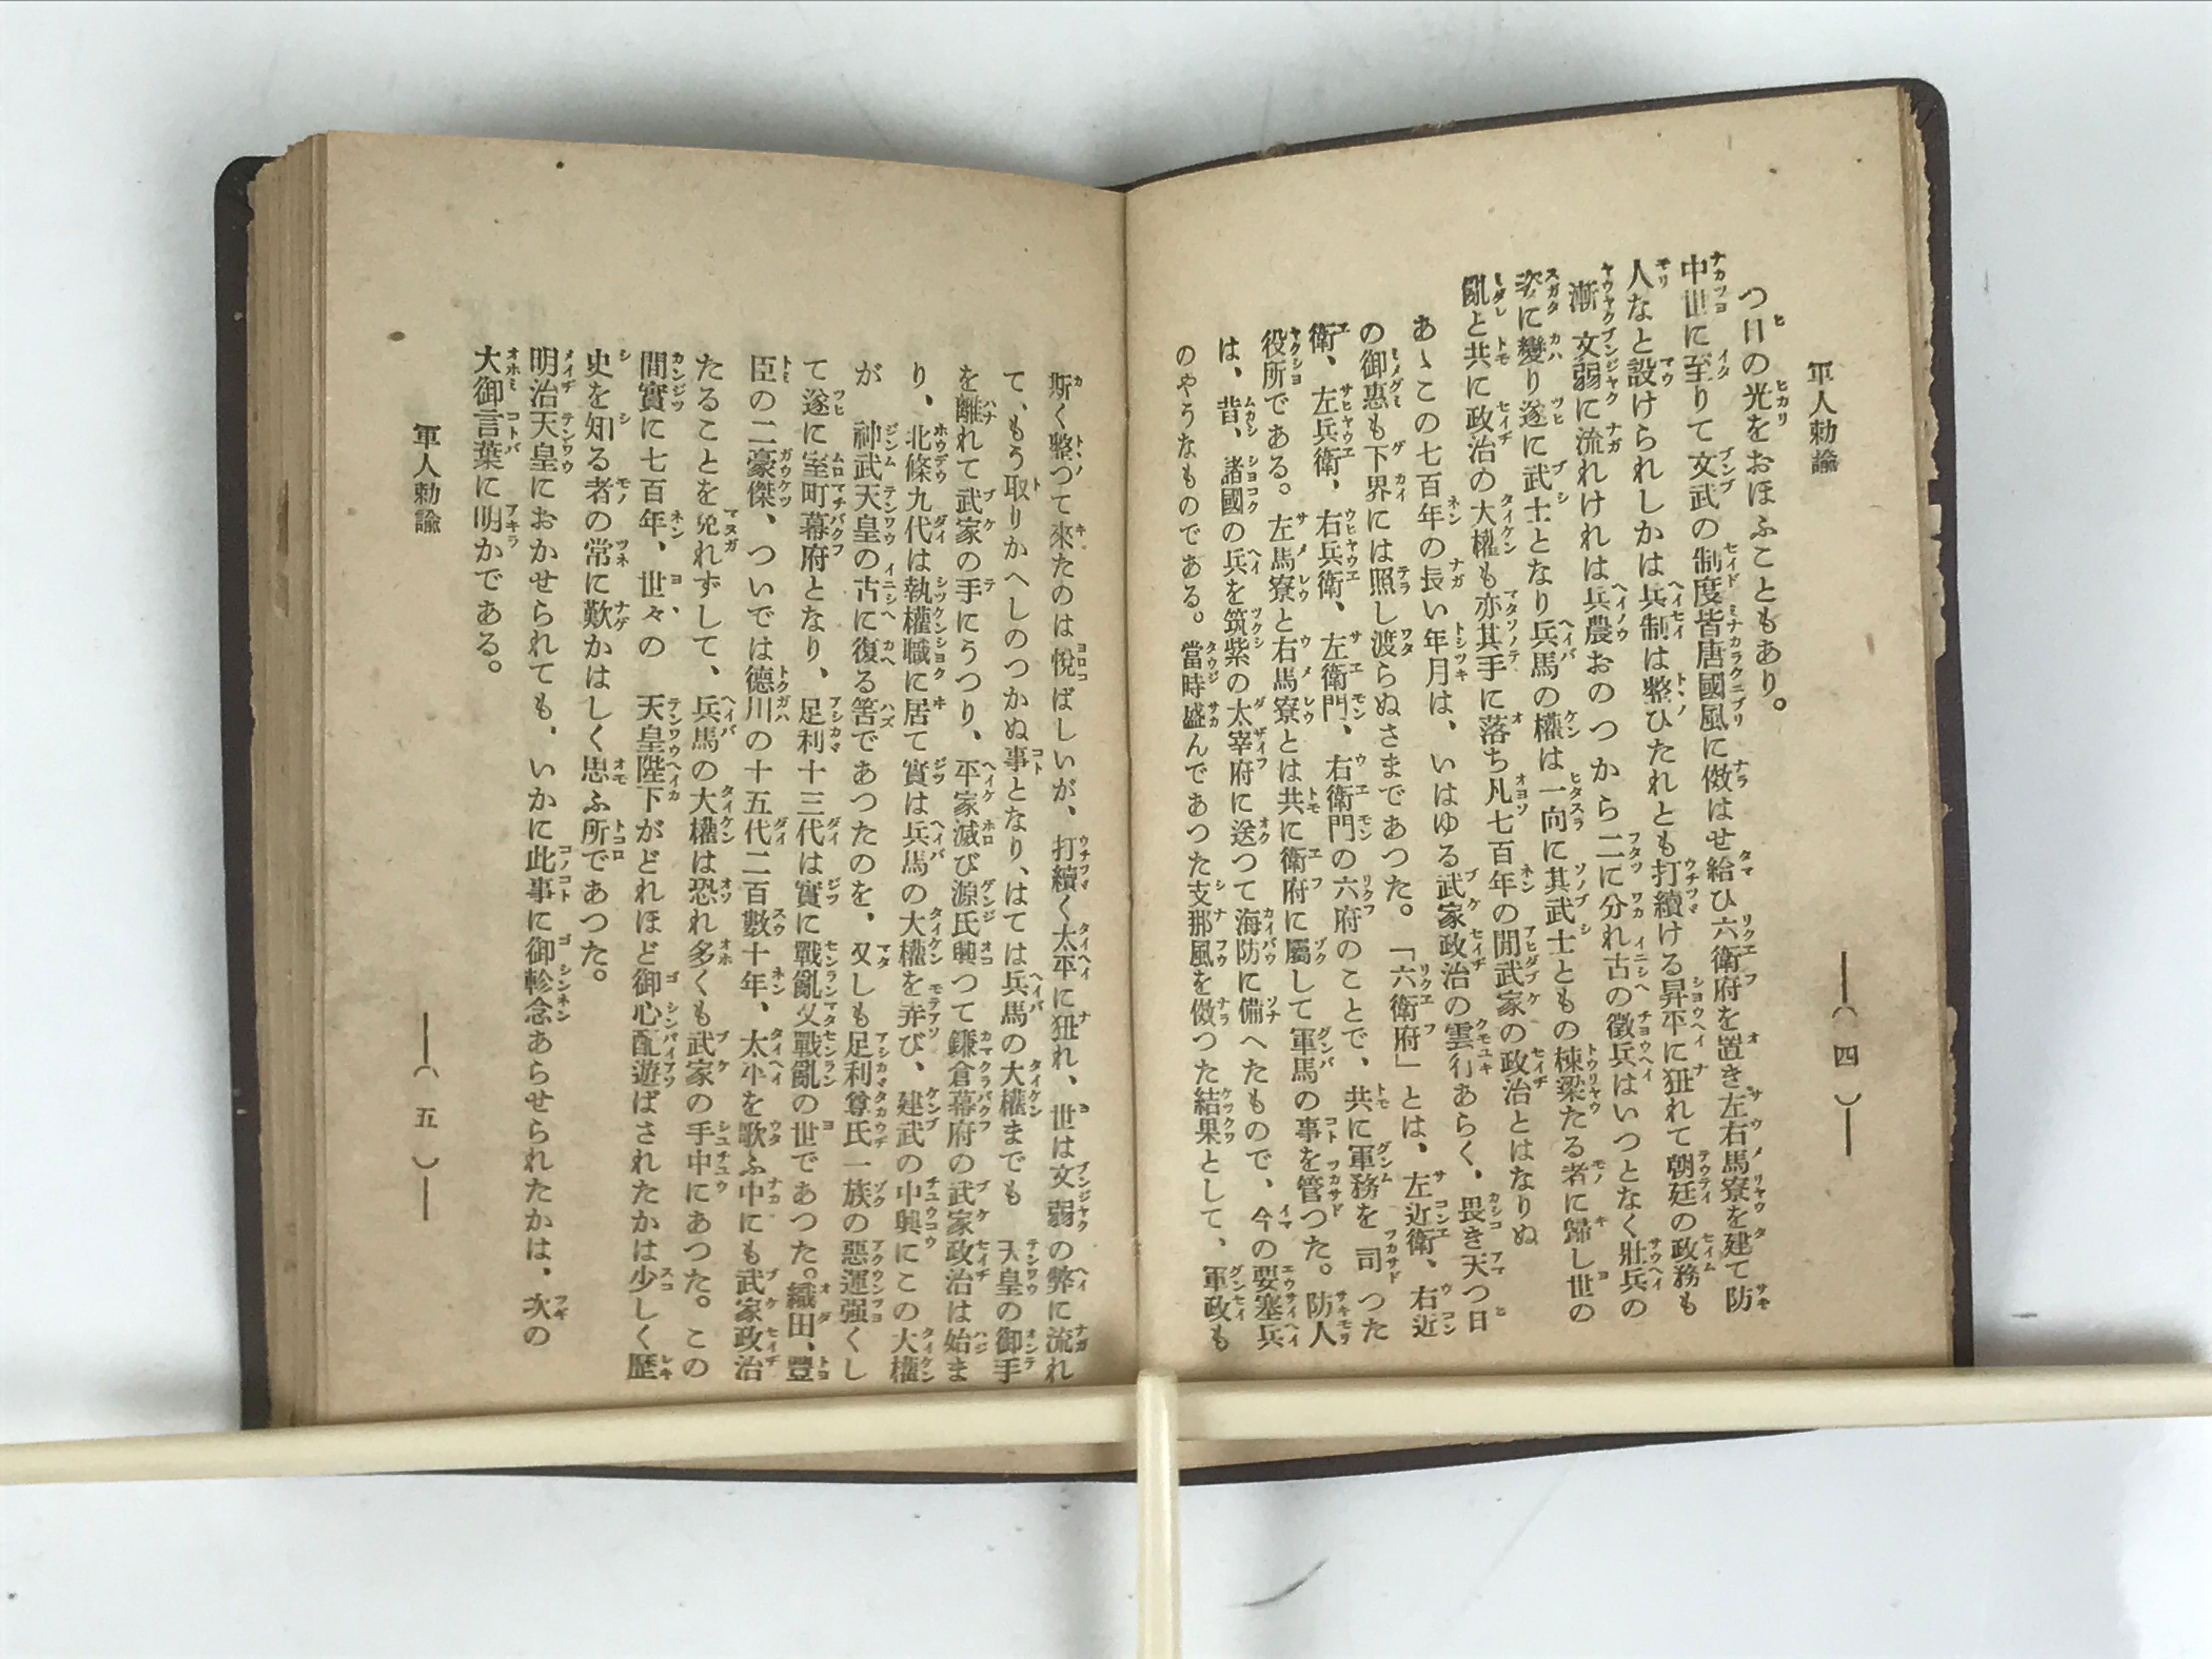 軍人勅諭
つ日の光をおほふこともあり。
中世に至りて文武の制度皆唐國風に傚はせ給ひ六衛府を置き左右馬寮を建て防
人なと設けられしかは兵制は整ひたれとも打續ける昇平に狃れて朝廷の政務も
漸文弱に流れけれは兵農おのつから二に分れ古の徵兵はいつとなく壯兵の
姿に變り遂に武士となり兵馬の權は一向に其武士ともの棟梁たる者に歸し世の
亂と共に政治の大權も亦其手に落ち凡七百年の間武家の政治とはなりぬ
あゝこの七百年の長い年月は、いはゆる武家政治の雲行あらく、畏き天つ日
の御惠も下界には照し渡らぬさまであつた。「六衛府」とは、左近衛、右近
衛、左兵衛、右兵衛、左衛門、右衛門の六府のことで、共に軍務を司つた
役所である。左馬寮と右馬寮とは共に衛府に屬して軍馬の事を管つた。防人
は、昔、諸國の兵を筑紫の太宰府に送つて海防に備へたもので、今の要塞兵
のやうなものである。當時盛んであつた支那風を傚つた結果として、軍政も
―( 四 )―
斯く整つて來たのは悅ばしいが、打續く太平に狃れ、世は文弱の弊に流れ
て、もう取りかへしのつかぬ事となり、はては兵馬の大權までも　天皇の御手
を離れて武家の手にうつり、平家滅び源氏興つて鎌倉幕府の武家政治は始ま
り、北條九代は執權職に居て實は兵馬の大權を弄び、建武の中興にこの大權
が　神武天皇の古に復る筈であつたのを、又しも足利尊氏一族の惡運强くし
て遂に室町幕府となり、足利十三代は實に戰亂又戰亂の世であつた。織田、豐
臣の二豪傑、ついでは德川の十五代二百數十年、太平を歌ふ中にも武家政治
たることを免れずして、兵馬の大權は恐れ多くも武家の手中にあつた。この
間實に七百年、世々の　天皇陛下がどれほど御心配遊ばされたかは少しく歷
史を知る者の常に歎かはしく思ふ所であつた。
明治天皇におかせられても、いかに此事に御軫念あらせられたかは、次の
大御言葉に明かである。
軍人勅諭
―( 五 )―